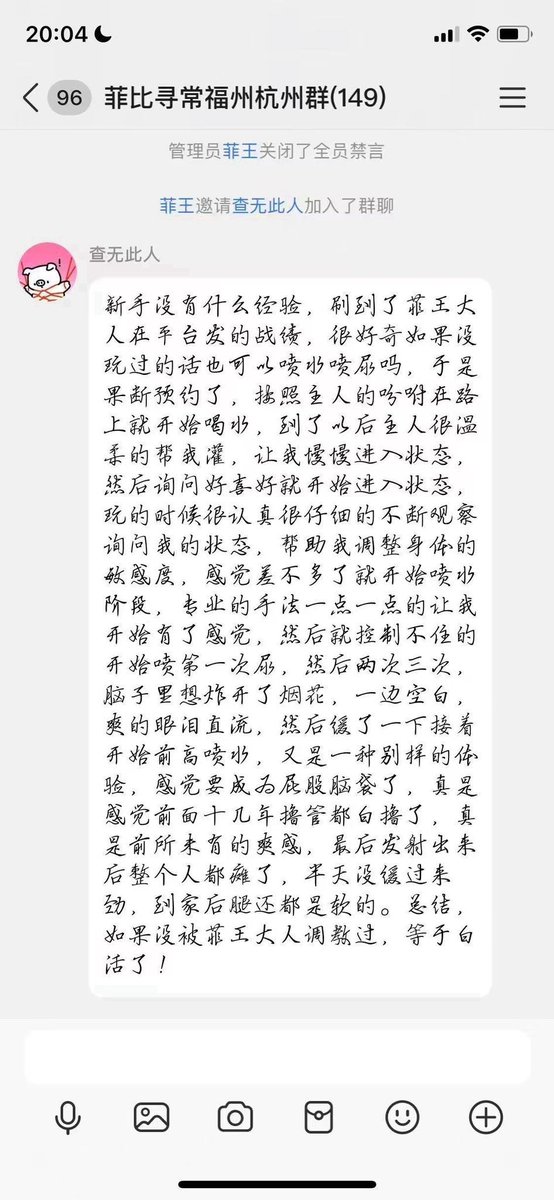 20:04
96 菲比寻常福州杭州群(149)
管理员菲王关闭了全员禁言
菲王邀请查无此人加入了群聊
查无此人
新手没有什么经验，刷到了菲王大
人在平台发的战绩，很好奇如果没
玩过的话也可以喷水喷尿吗，于是
果断预约了，按照主人的吩咐在路
上就开始喝水，到了以后主人很温
柔的帮我灌，让我慢慢进入状态，
然后询问好喜好就开始进入状态，
玩的时候很认真很仔细的不断观察
询问我的状态，帮助我调整身体的
敏感度，感觉差不多了就开始喷水
阶段，专业的手法一点一点的让我
开始有了感觉，然后就控制不住的
开始喷第一次尿，然后两次三次，
脑子里想炸开了烟花，一边空白，
爽的眼泪直流，然后缓了一下接着
开始前高喷水，又是一种别样的体
验，感觉要成为屁股脑袋了，真是
感觉前面十几年撸管都白撸了，真
是前所未有的爽感，最后发射出来
后整个人都瘫了，半天没缓过来
劲，到家后腿还都是软的。总结，
如果没被菲王大人调教过，等于白
活了！